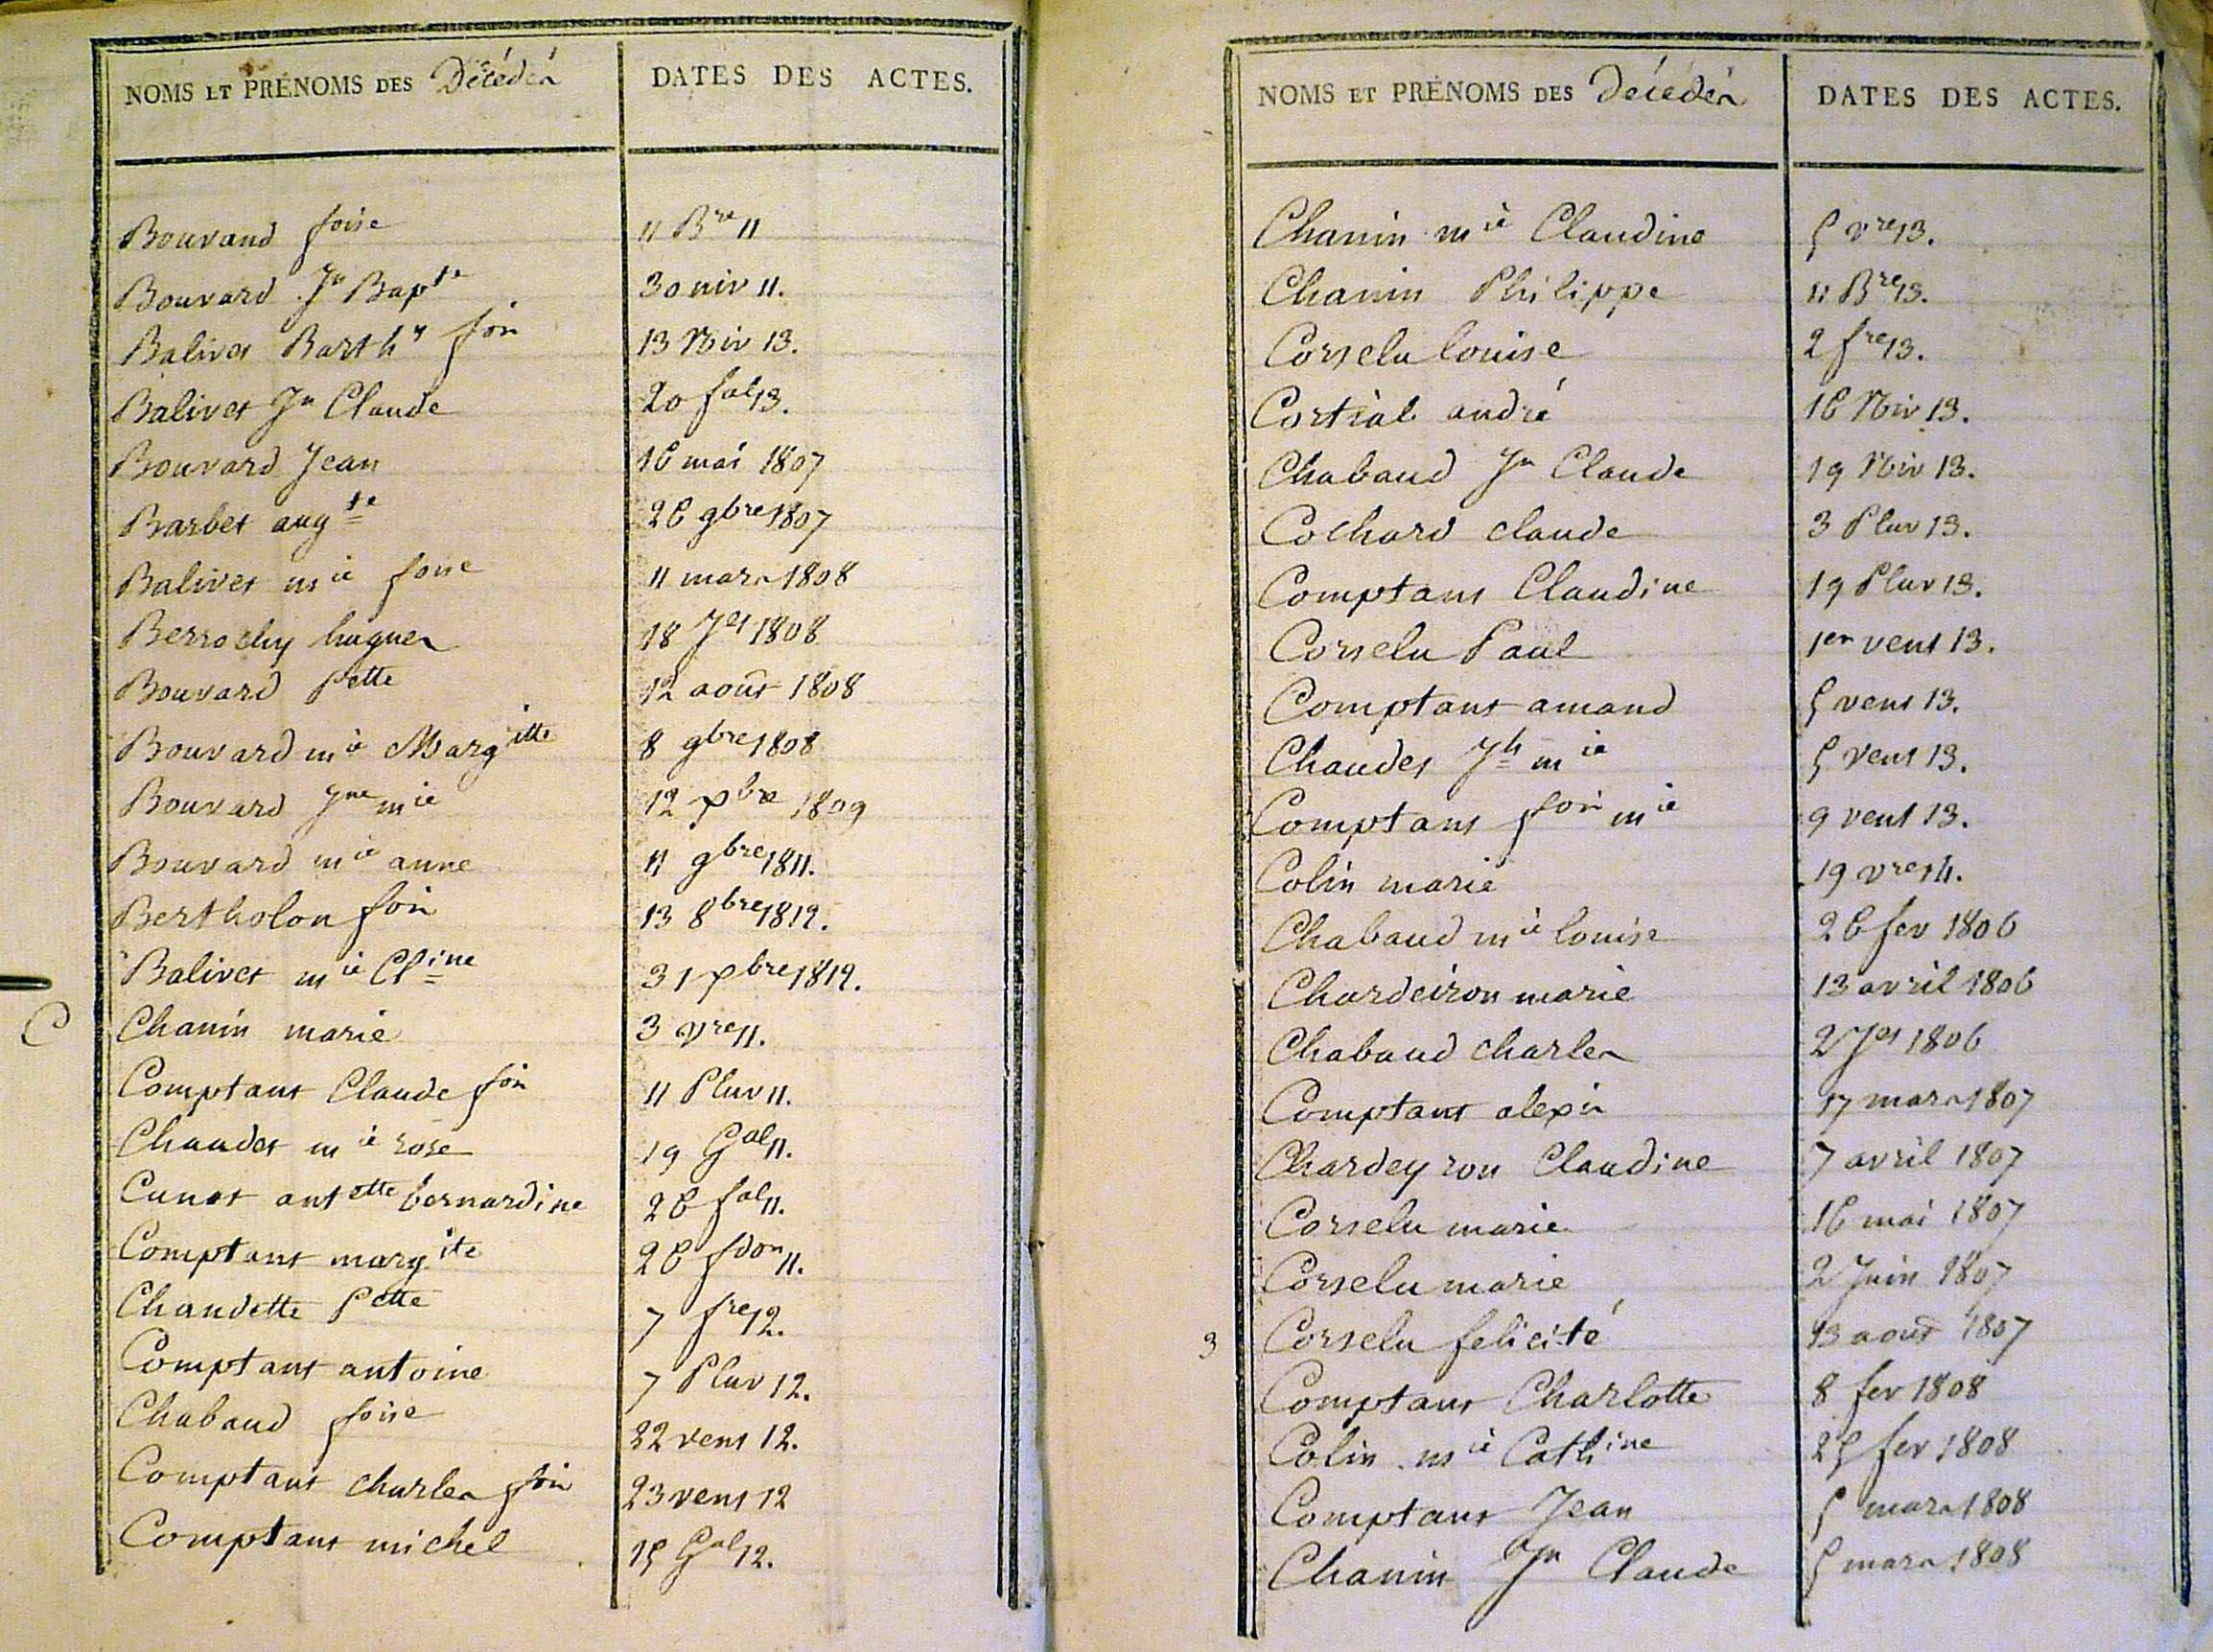 NOMS ET PRÉNOMS DES Décédés DATES DES ACTES.
Bouvand foise 11 Bre 11
Bouvard Jn Bapte 30 niv 11.
Balivet Barthy fois 13 Niv 13.
Balivet Jn Claude 20 fal 13.
Bouvard Jean 16 mai 1807
Barbet augte 26 9bre 1807
Balivet mie foise 11 mars 1808
Berrochy hugues 18 Jet 1808
Bouvard Pette 12 août 1808
Bouvard mie Margitte 8 9bre 1808
Bouvard Jne mie 12 xbre 1809
Bouvard mie anne 11 9bre 1811.
Bertholon fois 13 8bre 1812.
Balivet mie Cline 31 xbre 1812.
C
Chanin marie 3 vre 11.
Comptant Claude fois 11 Pluv 11.
Chaudet mie rose 19 Gal 11.
Cunot antette bernardine 26 fal 11.
Comptant margite 26 fdor 11.
Chaudette Pette 7 fre 12.
Comptant antoine 7 Pluv 12.
Chabaud foise 22 vent 12.
Comptant charles fois 23 vent 12
Comptant michel 15 Gal 12.
NOMS ET PRÉNOMS DES Décédés DATES DES ACTES.
Chanin mie Claudine 5 vre 13.
Chanin Philippe 11 Bre 13.
Corselu louise 2 fre 13.
Cortial andré 16 Niv 13.
Chabaud Jn Claude 19 Niv 13.
Cochard claude 3 Pluv 13.
Comptant Claudine 19 Pluv 13.
Corselu Paul 1er vent 13.
Comptant amand 5 vent 13.
Chaudet Jh mie 5 vent 13.
Comptant fois mie 9 vent 13.
Colin marie 19 vre 14.
Chabaud mie louise 26 fev 1806
Chardeiron marie 13 avril 1806
Chabaud charles 2 Jet 1806
Comptant alexis 17 mars 1807
Chardeyron Claudine 7 avril 1807
Corselu marie 16 mai 1807
Corselu marie 2 Juin 1807
3
Corselu felicité 13 août 1807
Comptant Charlotte 8 fev 1808
Colin mie Cathine 25 fev 1808
Comptant Jean 5 mars 1808
Chanin Jn Claude 5 mars 1808